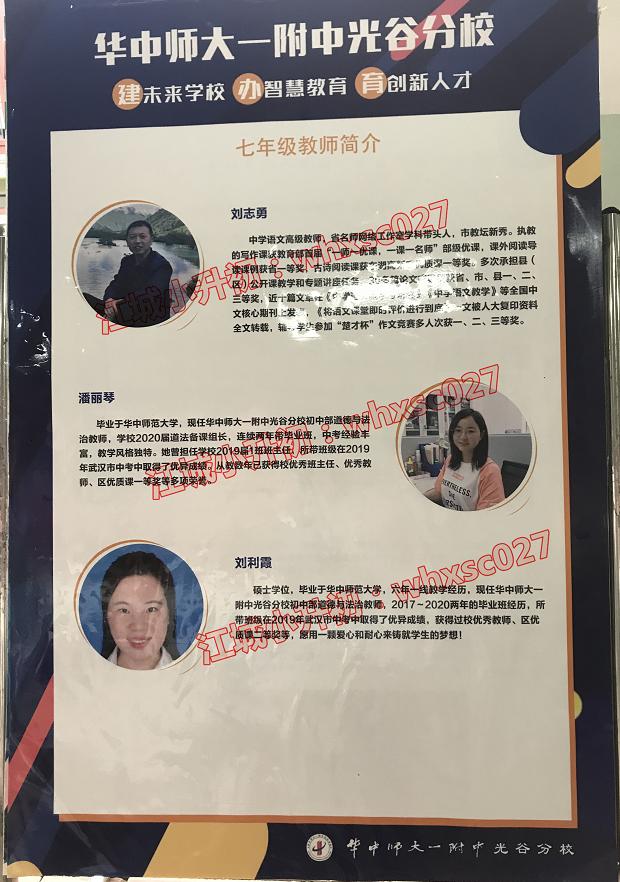 华中师大一附中光谷分校
建未来学校 办智慧教育 育创新人才
七年级教师简介
刘志勇
中学语文高级教师，省名师网络工作室学科带头人，市教坛新秀。执教
的写作课获教育部首届“一师一优课，一课一名师”部级优课，课外阅读导
读课课例获省一等奖，古诗阅读课获
一等奖。多次承担县（
区）公开课教学和专题讲座任务。
论文
获省、市、县一、二、
三等奖，近十篇文章在
《中学语文教学》等全国中
文核心期刊上发表，《将语文课堂即时评价进行到底》一文被人大复印资料
全文转载，辅导学生参加“楚才杯”作文竞赛多人次获一、二、三等奖。
潘丽琴
毕业于华中师范大学，现任华中师大一附中光谷分校初中部道德与法
治教师，学校2020届道法备课组长，连续两年带毕业班，中考经验丰
富，教学风格独特。她曾担任学校2019届1班班主任，所带班级在2019
年武汉市中考中取得了优异成绩。从教数年已获得校优秀班主任、优秀教
师、区优质课一等奖等多项荣誉。
刘利霞
硕士学位，毕业于华中师范大学，六年一线教学经历，现任华中师大一
附中光谷分校初中部道德与法治教师，2017～2020两年的毕业班经历，所
带班级在2019年武汉市中考中取得了优异成绩，获得过校优秀教师、区优
质课二等奖等，愿用一颗爱心和耐心来铸就学生的梦想！
江城小升初：whxsc027
江城小升初：whxsc027
江城小升初：whxsc027
华中师大一附中光谷分校